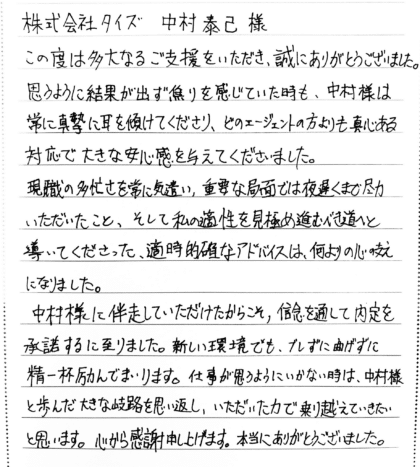 株式会社タイズ 中村泰己様
この度は多大なるご支援をいただき、誠にありがとうございました。
思うように結果が出ず焦りを感じていた時も、中村様は
常に真摯に耳を傾けてくださり、どのエージェントの方よりも真心ある
対応で大きな安心感を与えてくださいました。
現職の多忙さを常に気遣い、重要な局面では夜遅くまで尽力
いただいたこと、そして私の適性を見極め進むべき道へと
導いてくださった、適時的確なアドバイスは、何よりの心の支え
になりました。
中村様に伴走していただけたからこそ、信念を通して内定を
承諾するに至りました。新しい環境でも、ブレずに曲げずに
精一杯励んでまいります。仕事が思うようにいかない時は、中村様
と歩んだ大きな岐路を思い返し、いただいた力で乗り越えていきたい
と思います。心から感謝申し上げます。本当にありがとうございました。